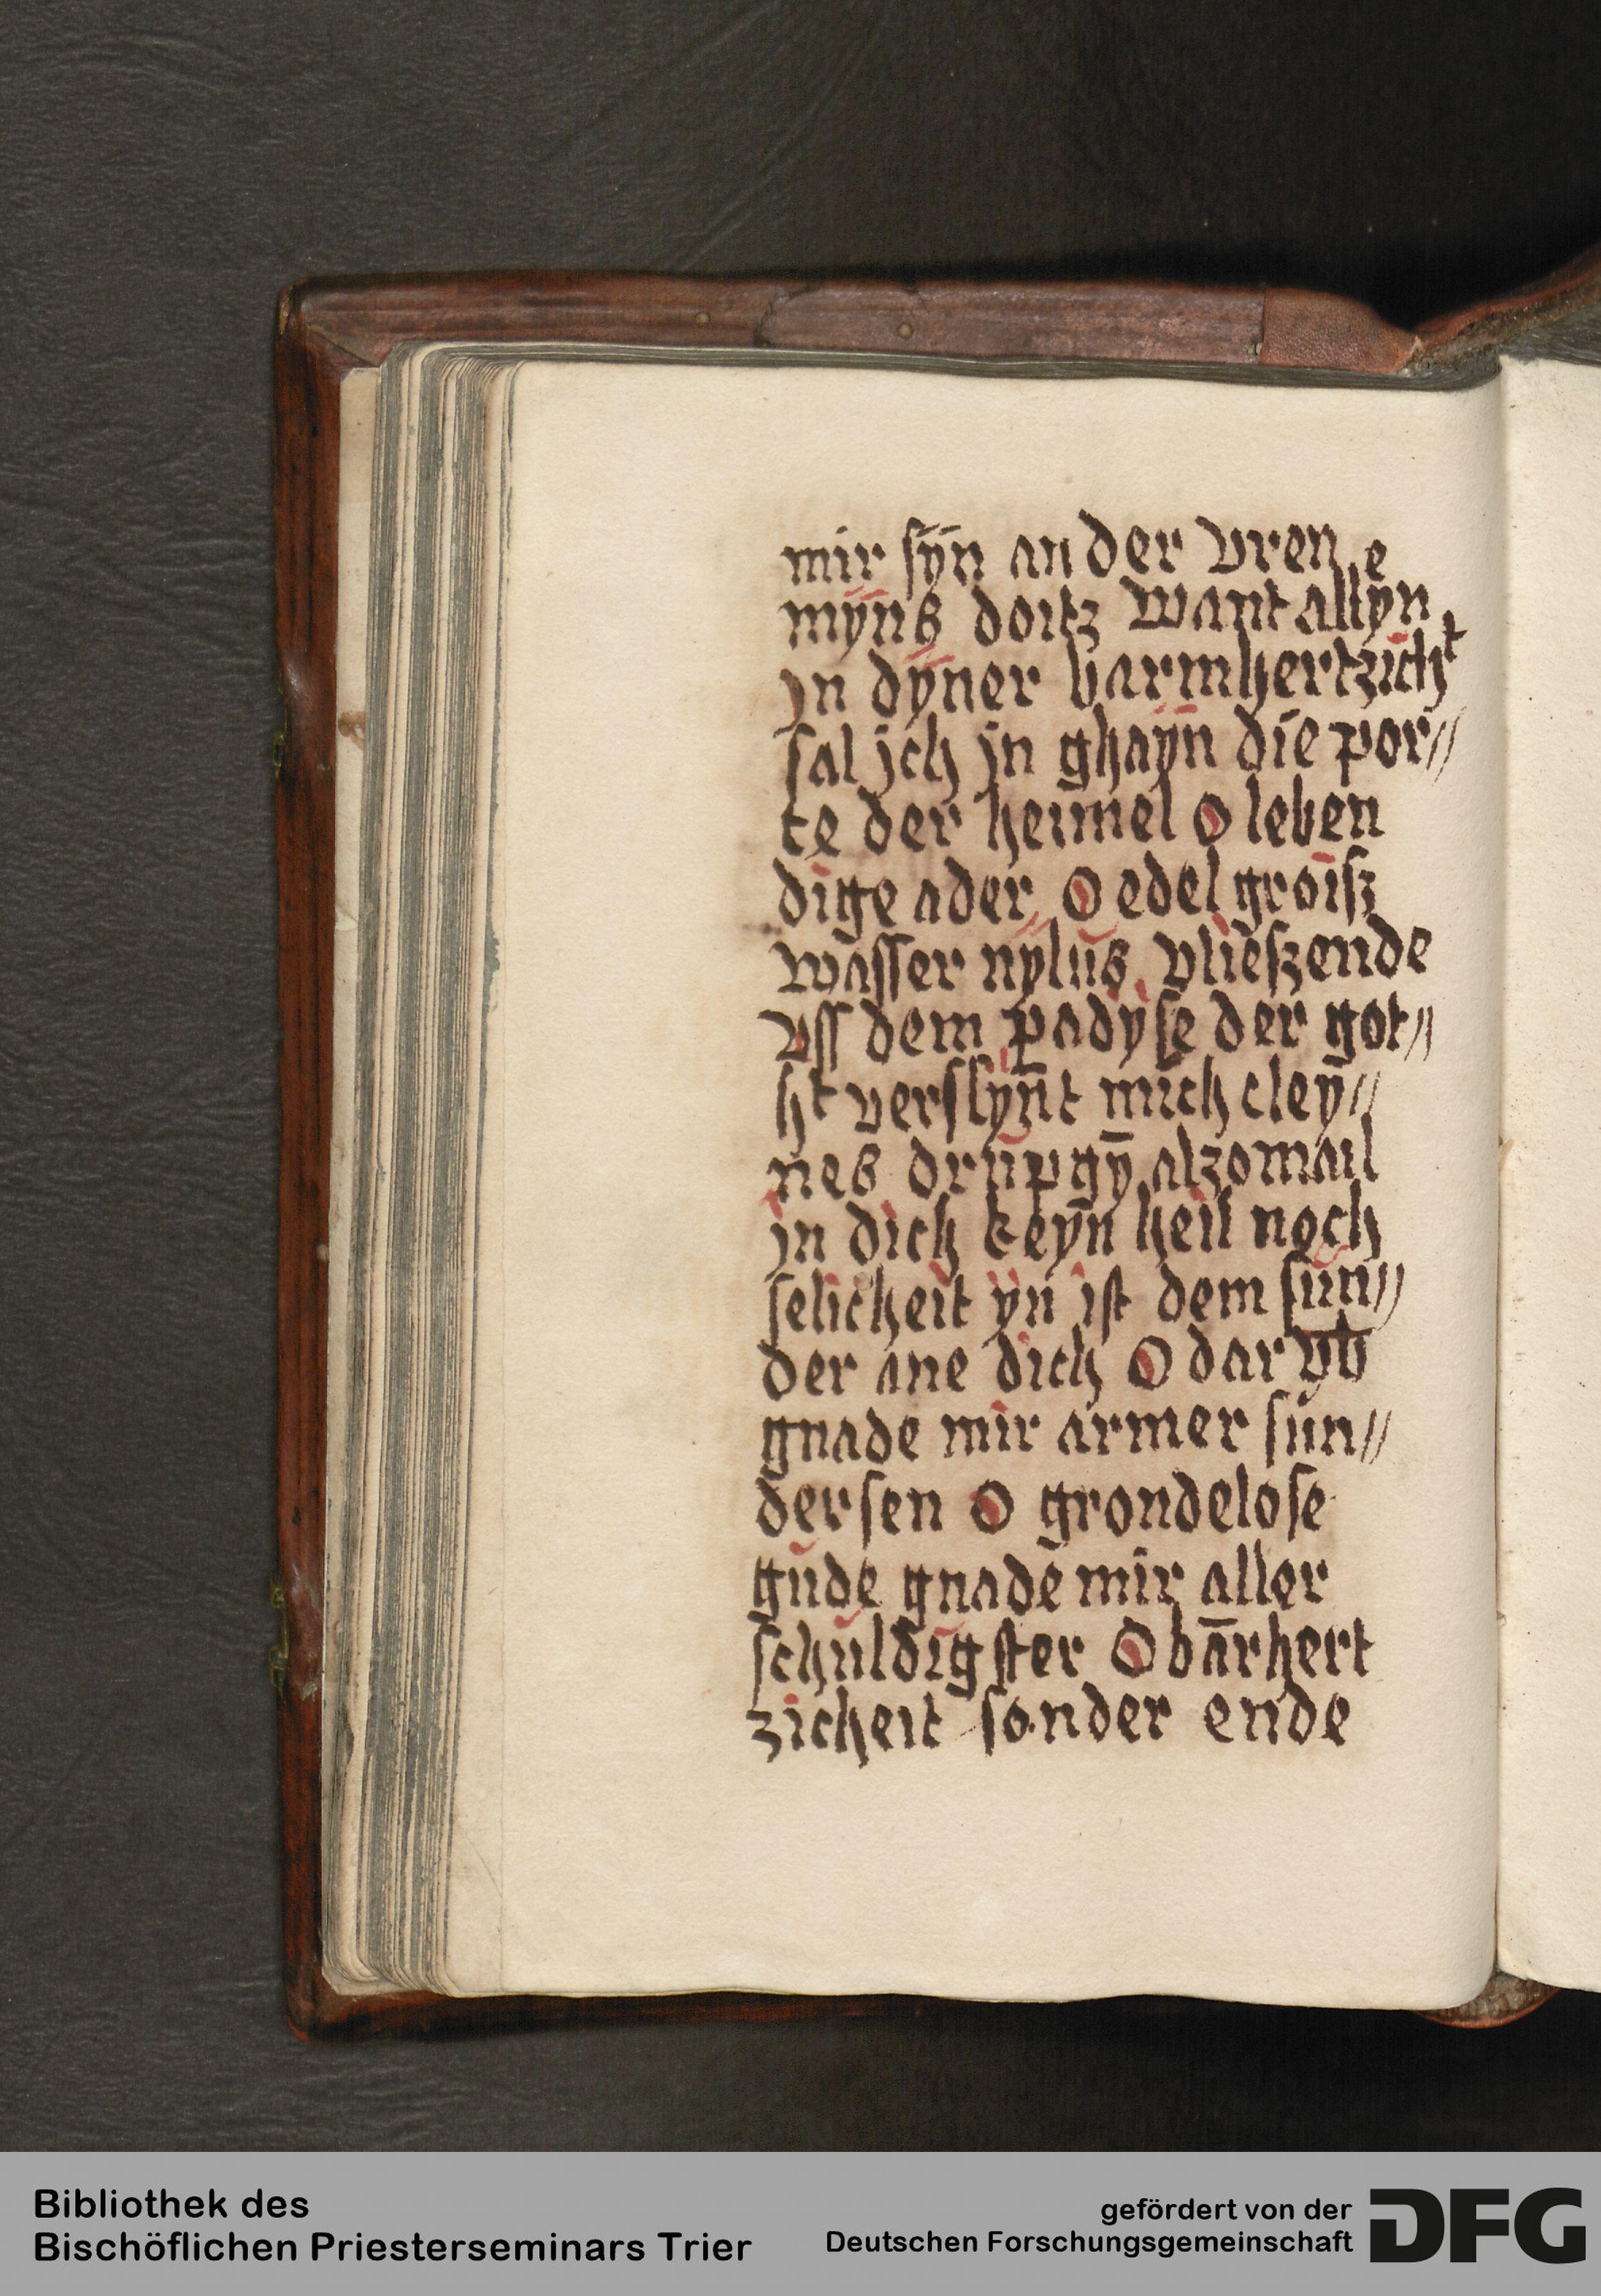 mir syn an der vren
myns doitz want allyn e
jn dyner barmhertzicht
sal jch jn ghayn die por//
te der heimel o leben
dige ader o edel groisz
wasser nylus vlieszende
vss dem padyse der got//
ht verslynt mich cley//
nes drupgȳ alzomail
jn dich keyn heil noch
selicheit yn ist dem sun//
der ane dich O dar vb
gnade mir armer sun//
dersen O grondelose
gude gnade mir aller
schuldigster O bārhert
zicheit sonder ende
Bibliothek des
Bischöflichen Priesterseminars Trier
gefördert von der
Deutschen Forschungsgemeinschaft
DFG